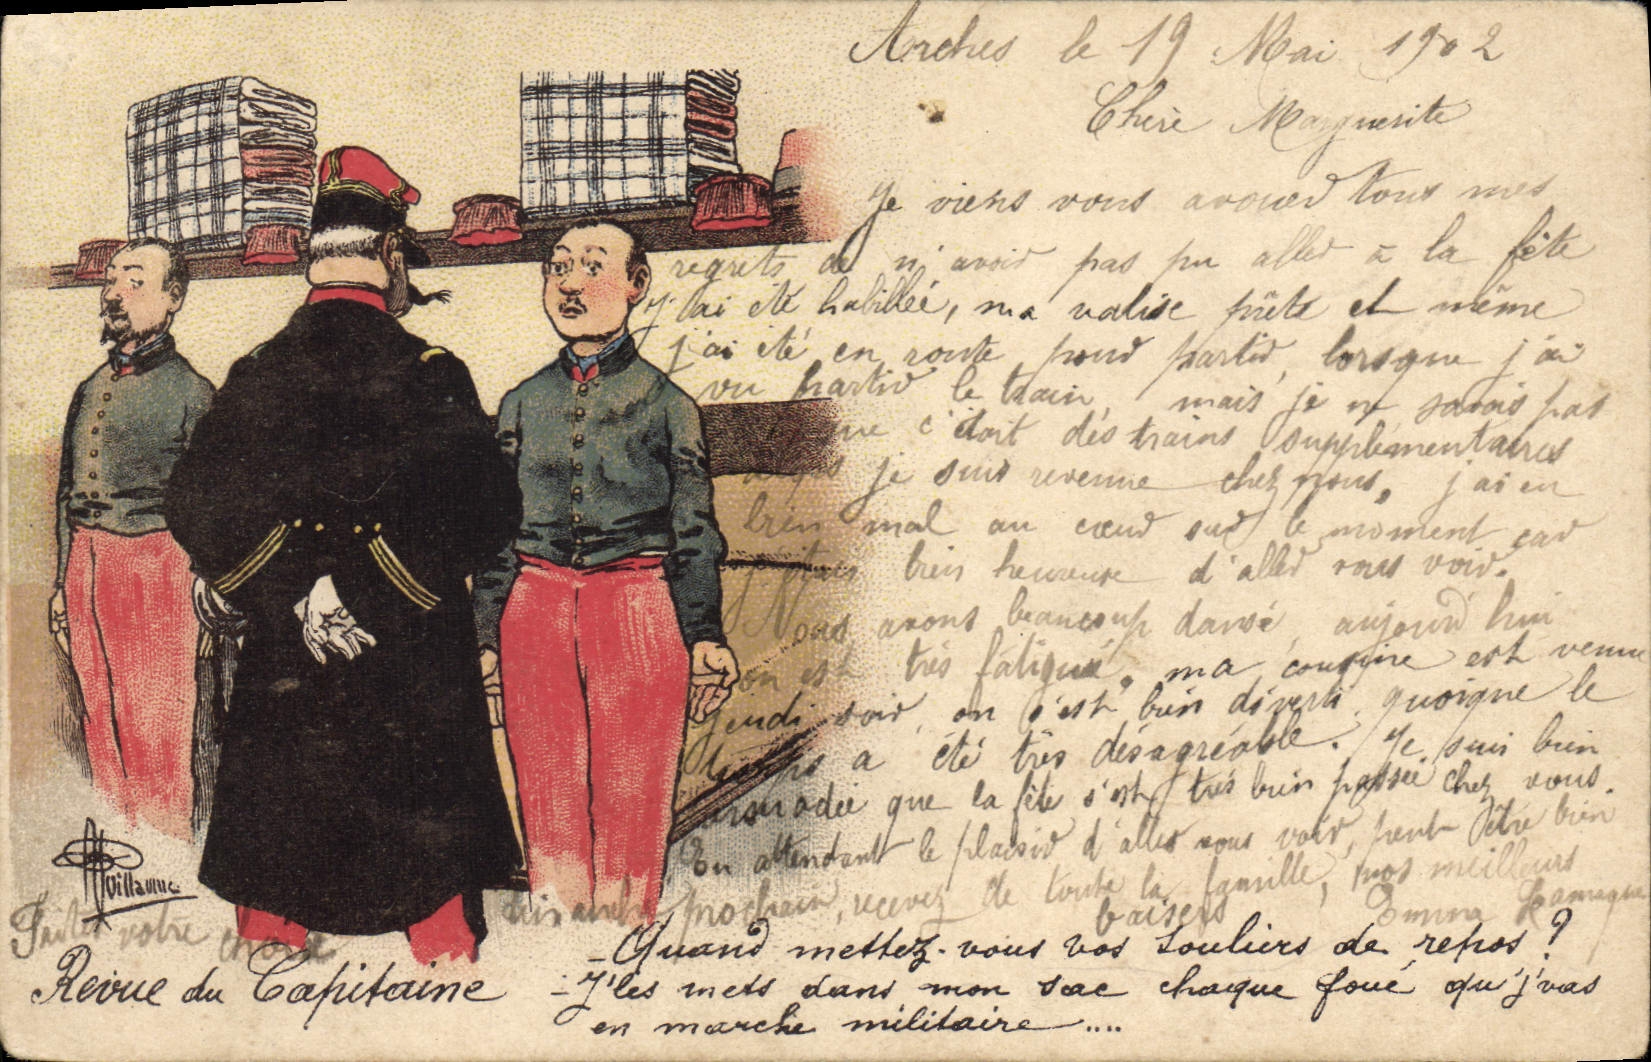 Arches le 19 Mai 1902
Chère Marguerite
Je viens vous avouer tous mes
regrets de n'avoir pas pu aller à la fête
J'ai été habillée, ma valise prête et même
j'ai été en route pour partir, lorsque j'ai
vu partir le train, mais je ne savais pas
que c'était des trains supplémentaires
je suis revenue chez nous, j'ai eu
bien mal au cœur sur le moment car
j'étais bien heureuse d'aller vous voir.
Nous avons beaucoup dansé, aujourd'hui
on est très fatigué, ma cousine est venue
jeudi soir, on s'est bien diverti quoique le
temps a été très désagréable. Je suis bien
que la fête s'est très bien passée chez vous.
En attendant le plaisir d'aller vous voir, peut être bien
prochain, recevez de toute la famille, nos meilleurs
baisers Emma
Faites votre
Guillaume
Revue du Capitaine
- Quand mettez-vous vos souliers de repos ?
- J'les mets dans mon sac chaque foué qu'j'vas
en marche militaire ....